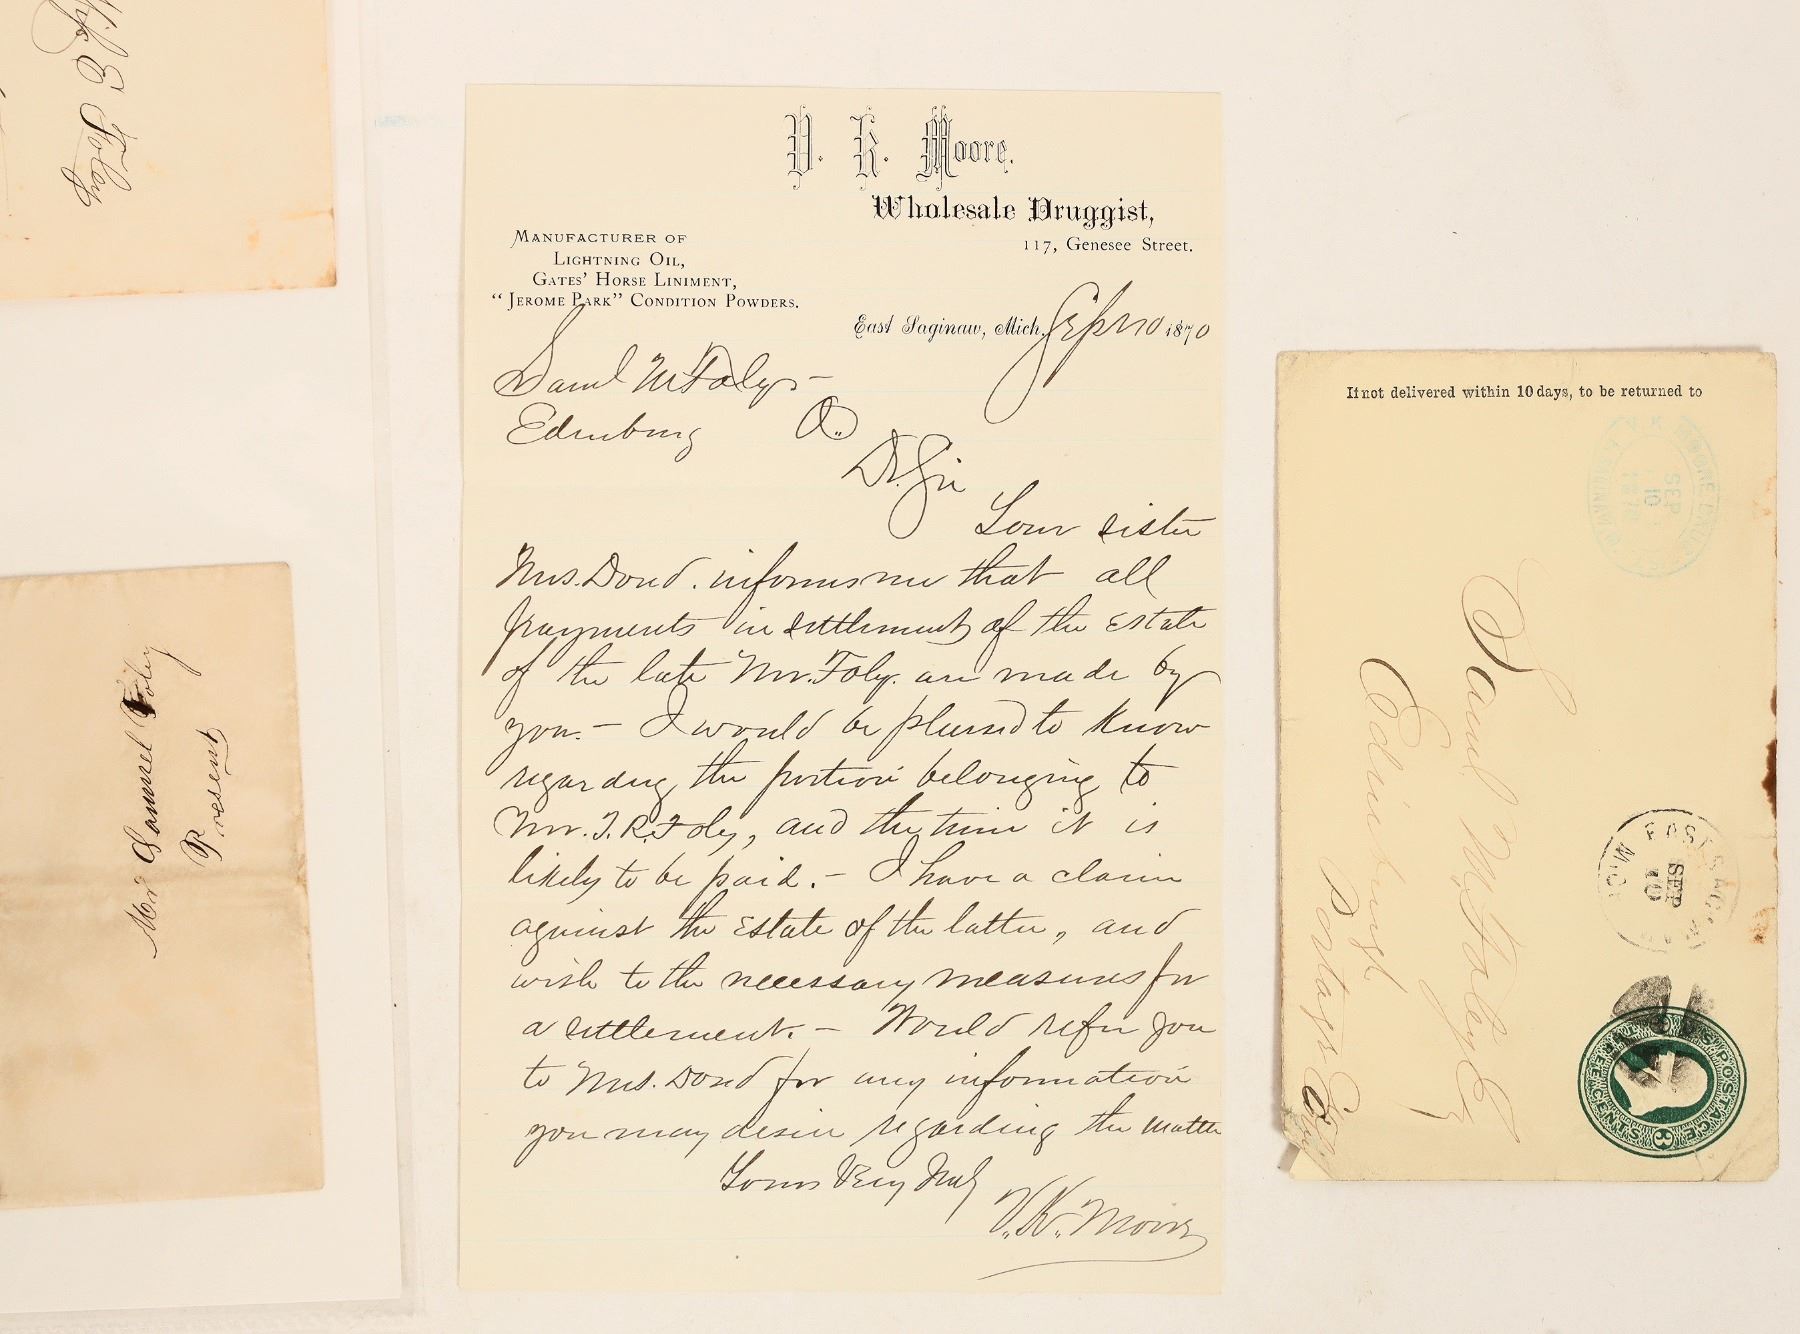 E Foley
Mr Samuel Foley
Present
V. K. Moore.
Wholesale Druggist,
117, Genesee Street.
Manufacturer of
Lightning Oil,
Gates' Horse Liniment,
"Jerome Park" Condition Powders.
East Saginaw, Mich. Sept 10 1870
Saml M Foley
Edinburg O.
Dr. Sir
Your sister
Mrs. Dowd. informs me that all
payments in settlement of the Estate
of the late Mr. Foley. are made by
you. – I would be pleased to know
regarding the portion belonging to
Mr. T. R. Foley, and the time it is
likely to be paid. – I have a claim
against the Estate of the latter, and
wish to the necessary measures for
a settlement. – Would refer you
to Mrs. Dowd for any information
you may desire regarding the matter
Yours Very Truly
V. K. Moore
If not delivered within 10 days, to be returned to
V. K. MOORE
SEP
10
1870
Saml M. Foley
Edinburgh
Portage Co
EAST SAGINAW
SEP
10
MICH
U.S. POSTAGE
3